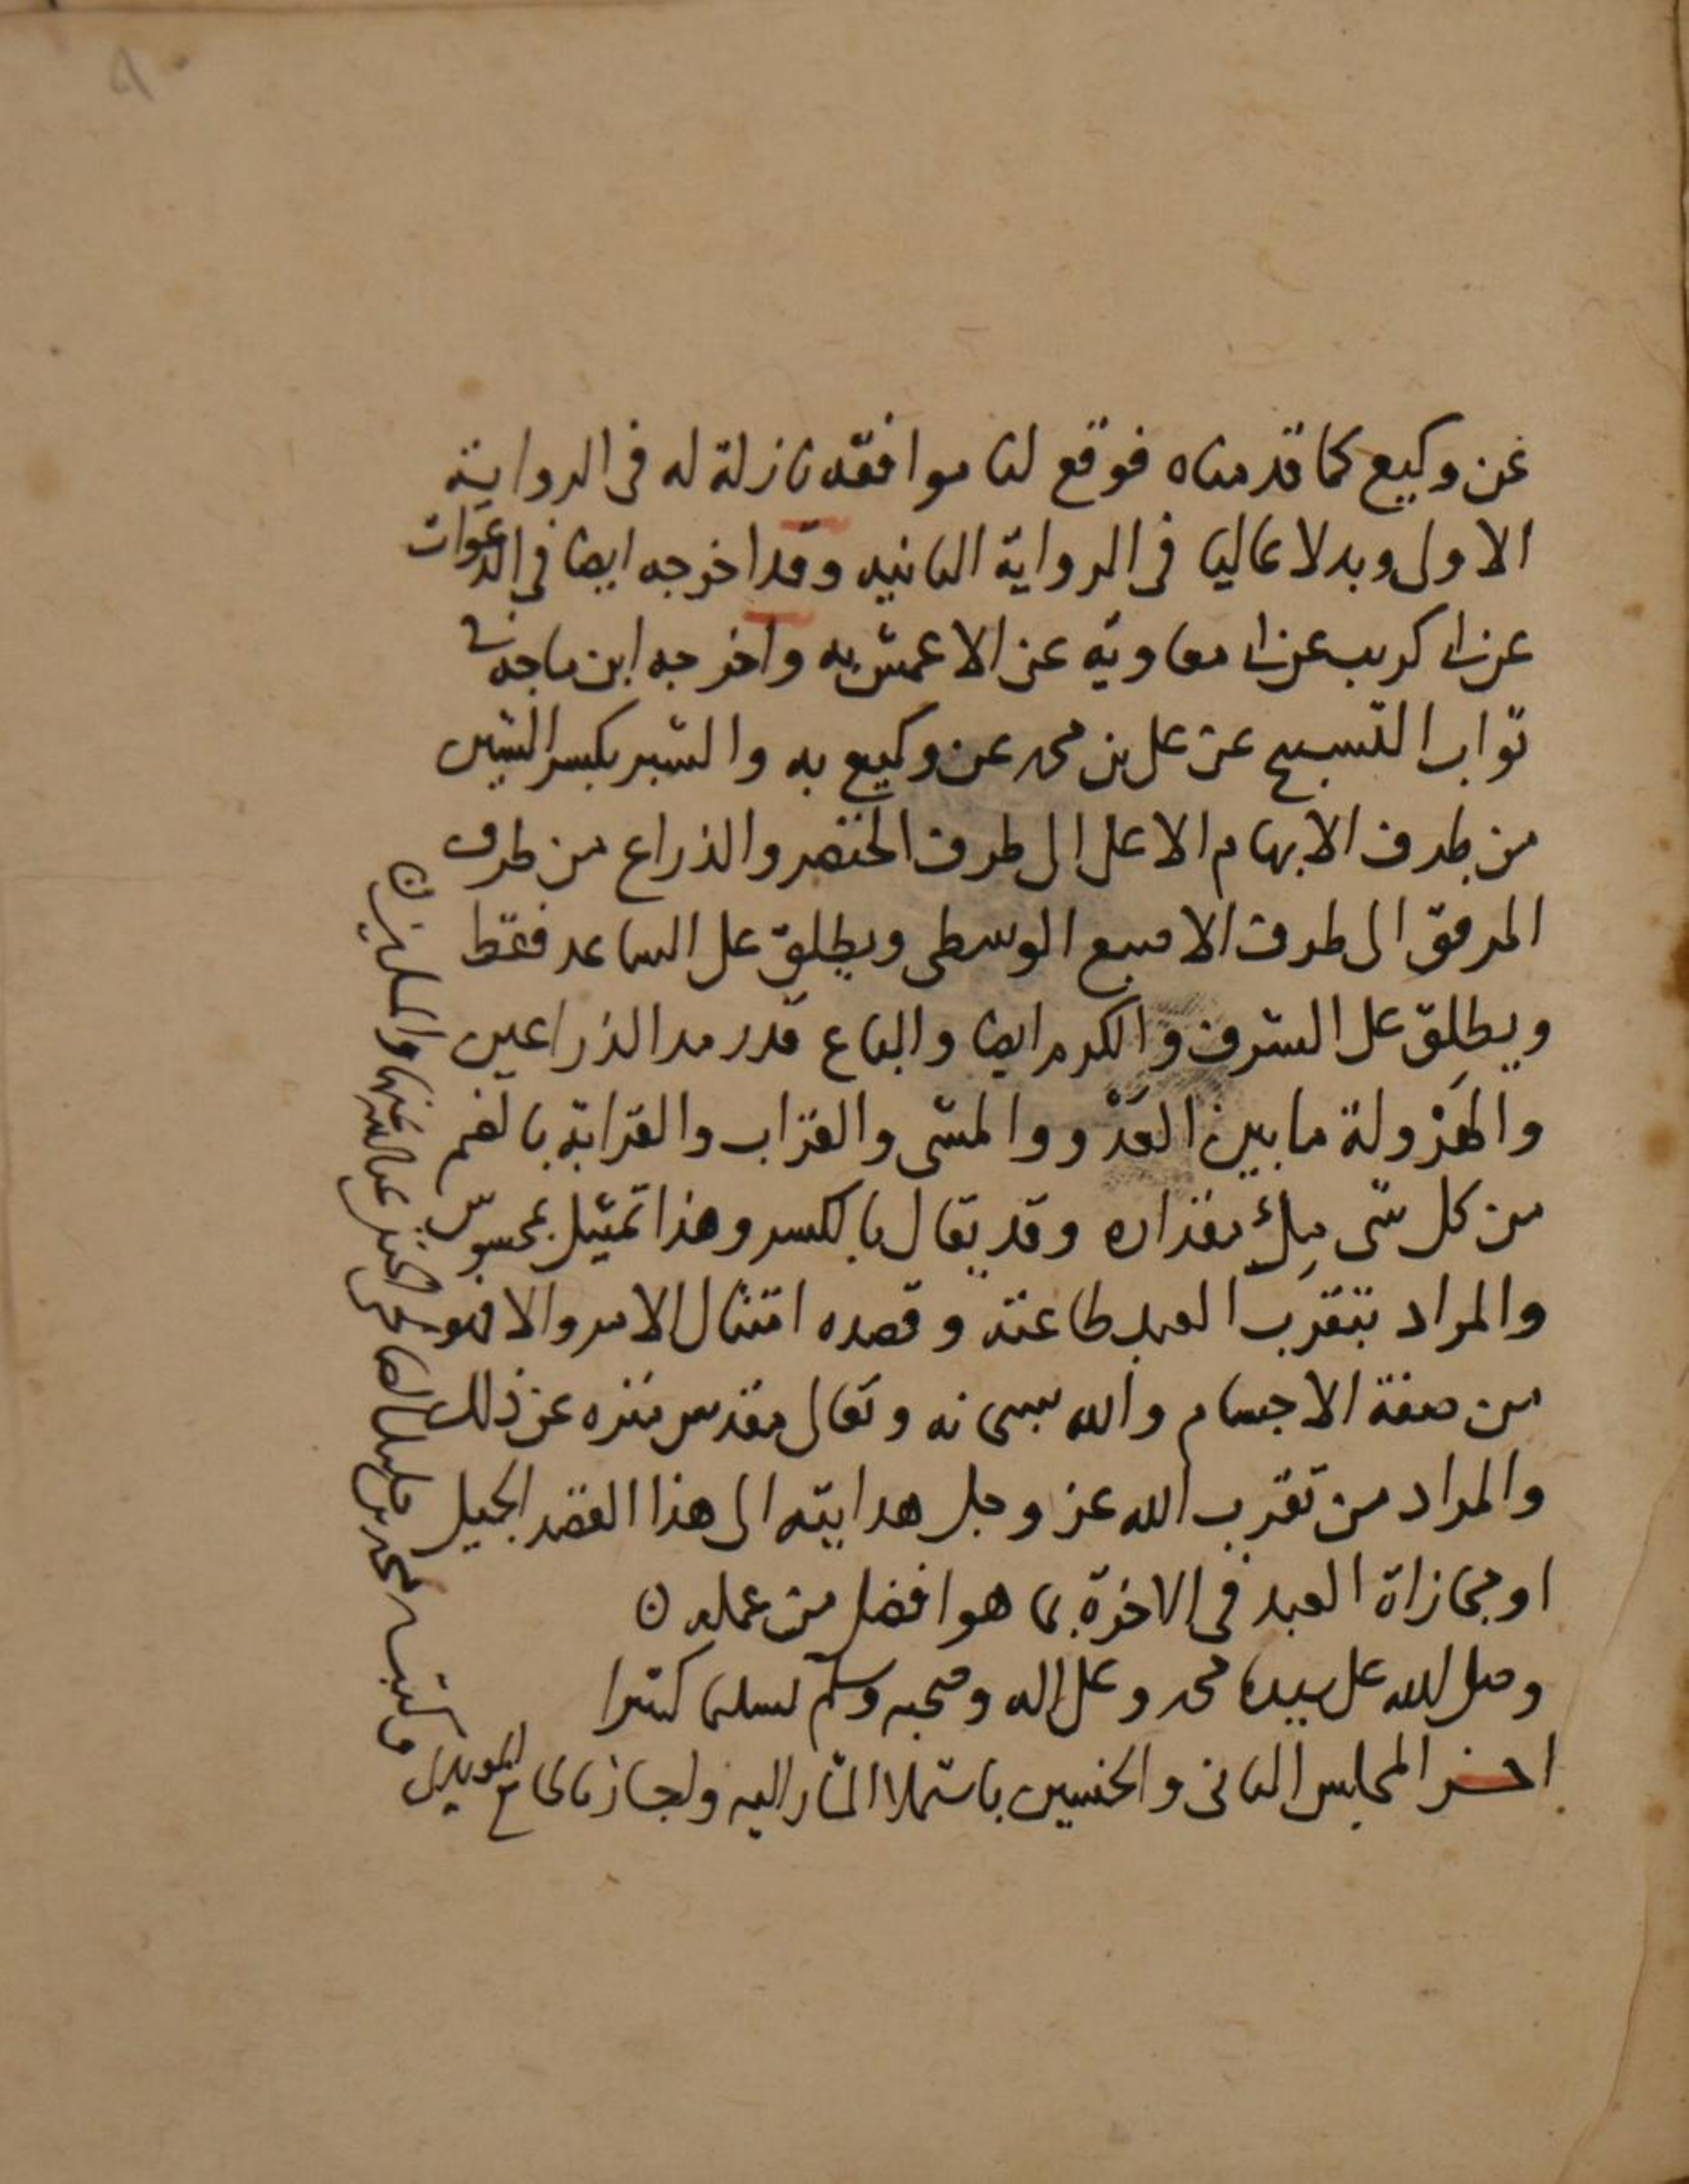 عن وكيع كما قدمناه فوقع لنا موافقه نازلة له فى الرواية
الاولى وبدلا عاليا فى الرواية الثانيه وقد اخرجه ايضا فى الدعوات
عن ابى كريب عن ابى معاوية عن الاعمش به واخرجه ابن ماجه فى
ثواب التسبيح عن على بن محمد عن وكيع به والشبر بكسر الشين
من طرف الابهام الاعلى الى طرف الخنصر والذراع من طرف
المرفق الى طرف الاصبع الوسطى ويطلق على الساعد فقط
ويطلق على الشرف والكرم ايضا والباع قدر مد الذراعين
والهَرْولة ما بين العَدْو والمشى والقراب والقرابة بالضم
من كل شى مِلئ مقداره وقد يقال بالكسر وهذا تمثيل بمحسوس
والمراد بتقرب العبد طاعته وقصده امتثال الامر والا فهو
من صفة الاجسام والله سبحانه وتعالى مقدس منزه عن ذلك
والمراد من تقرب الله عز وجل هدايته الى هذا القصد الجميل
او مجازاة العبد فى الاخرة بما هو افضل من عمله ن
وصلى الله على سيدنا محمد وعلى اله وصحبه وسلم تسليما كثيرا
اخر المجلس الثانى والخمسين باستملا المشار اليه واجاز ما
وكتب محمد بن على الصالحى الحنفى عفا الله عنهما والمسلمين ن